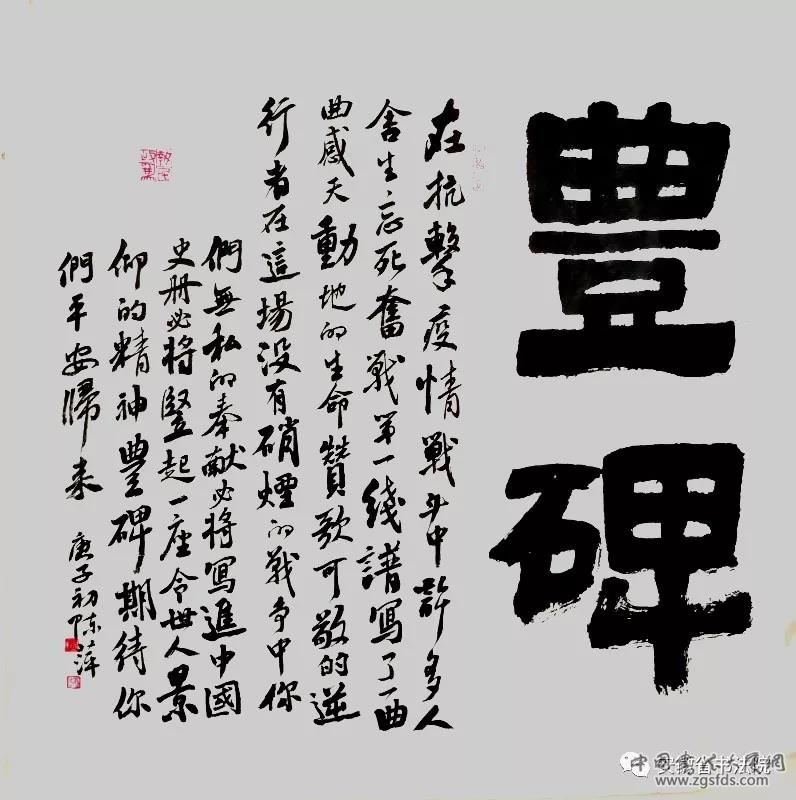 豐碑
在抗擊疫情戰斗中許多人
舍生忘死奮戰第一綫譜寫了一曲
曲感天動地的生命贊歌可敬的逆
行者在這場没有硝煙的戰争中你
們無私的奉獻必將寫進中國
史册必將竪起一座令世人景
仰的精神豐碑期待你
們平安歸来
庚子初陈萍
安徽省书法院
www.zgsfds.com